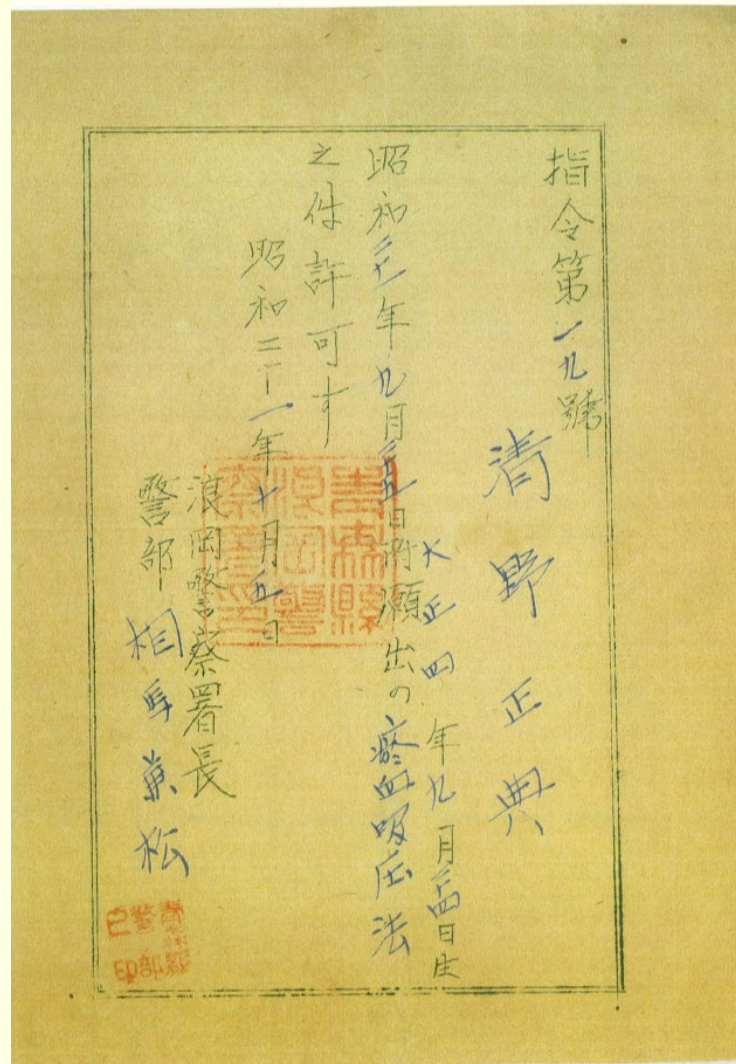 指令第一九號
清野正典
大正四年九月二四日生
昭和二十一年九月二五日附願出の瘀血吸圧法
之件許可す
昭和二十一年十月五日
浪岡警察署長
警部 相馬兼松
青森縣浪岡警察署印